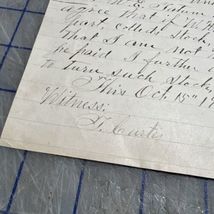 agree that if W. H.
Part. collects Stock
that I am not
be paid I further a
to turn such Stock
This Oct 15th 1
Witness:
T. Curtis